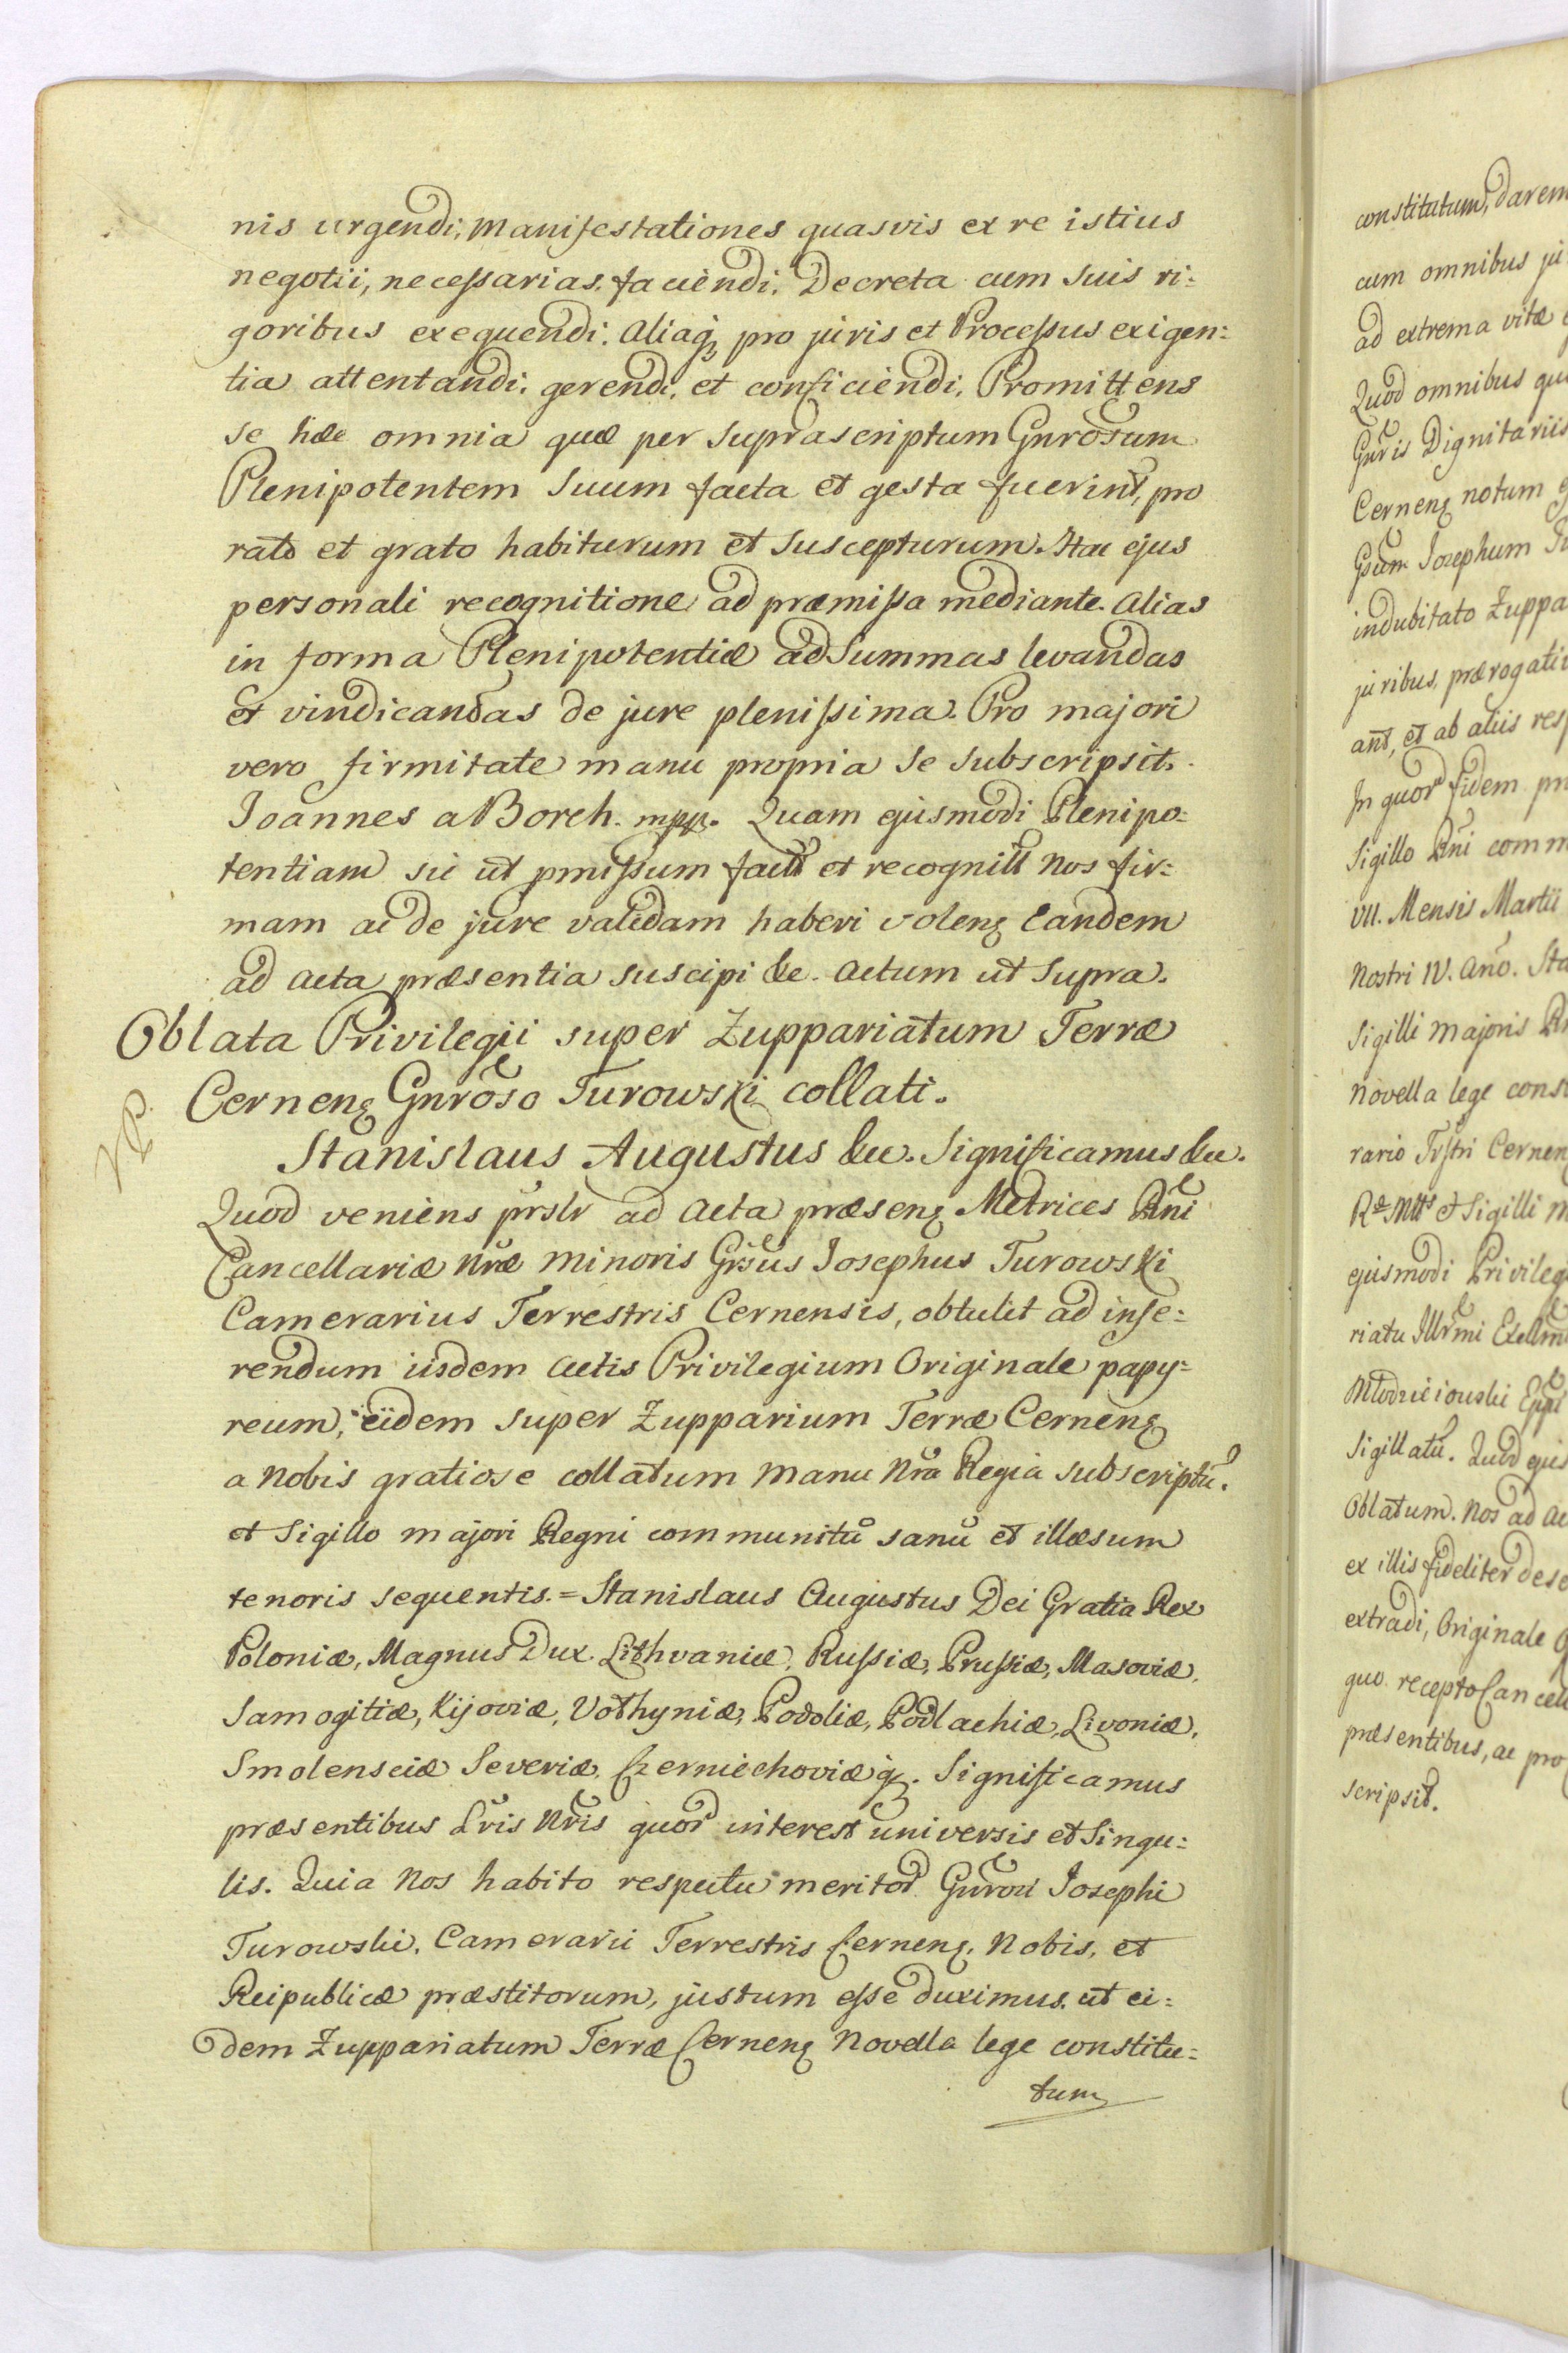 nis urgendi, Manifestationes quasvis ex re istius
negotii, necessarias faciendi. Decreta cum suis ri:
goribus exequendi. Aliaq; pro juris et Processus exigen:
tia attentandi. gerendi, et conficiendi, Promittens
se hæc omnia quæ per Suprascriptum Gnrosum
Plenipotentem Suum facta et gesta fuerint, pro
rato et grato habiturum et Suscepturum. Hac ejus
personali recognitione ad præmissa mediante. Alias
in forma Plenipotentiæ ad Summas levandas
et vindicandas de jure plenissima. Pro majori
vero firmitate manu propria se subscripsit.
Joannes a Borch. mpp. Quam ejusmodi Plenipo:
tentiam sic ut pmissum factã et recognitã Nos fir:
mam ac de jure validam haberi volenꝫ Eandem
ad Acta præsentia suscipi &c. Actum ut Supra.
Oblata Privilegii super Zuppariatum Terræ
Cernenꝫ Gnroso Turowski collati.
V.P.
Stanislaus Augustus &c. Significamus &c.
Quod veniens prslr ad Acta præsenꝫ Metrices Rni
Cancellariæ Nræ Minoris Grsus Josephus Turowski
Camerarius Terrestris Cernensis, obtulit ad inse:
rendum iisdem Actis Privilegium Originale papy:
reum, eidem super Zupparium Terræ Cernenꝫ
a Nobis gratiose collatum Manu Nra Regia subscriptũ.
et Sigillo majori Regni communitũ sanũ et illæsum
tenoris sequentis. = Stanislaus Augustus Dei Gratia Rex
Poloniæ, Magnus Dux Lithvaniæ, Russiæ, Prussiæ, Masoviæ,
Samogitiæ, Kijoviæ, Volhyniæ, Podoliæ, Podlachiæ, Livoniæ,
Smolensciæ Severiæ, Czerniechoviæq;. Significamus
præsentibus Lris Nris quor interest universis et Singu:
lis. Quia Nos habito respectu meritor Gnrou Josephi
Turowski, Camerarii Terrestris Cernenꝫ, Nobis, et
Reipublicæ præstitorum, justum esse duximus, ut ei:
dem Zuppariatum Terræ Cernenꝫ Novella lege constitu:
tum
constitutum, darem
cum omnibus ju
ad extrema vitæ
Quod omnibus qu
Gnris Dignitariis
Cernenꝫ notum
Gsum Josephum Tu
indubitato Zuppa
juribus, prærogati
ant, et ab aliis res
In quor fidem pr
Sigillo Rni comm
VII. Mensis Martii
Nostri IV. Ano. Sta
Sigilli majoris R
Novella lege const
rario Trstri Cernen
Ræ Mtts et Sigilli m
ejusmodi Privileg
riatu Illrmi Exellm
Młodzieiouski Eppi
Sigillatũ. Quod ejus
Oblatum. Nos ad Ac
ex illis fideliter desc
extradi, Originale
quo recepto Cancell
præsentibus, ac pro
scripsit.